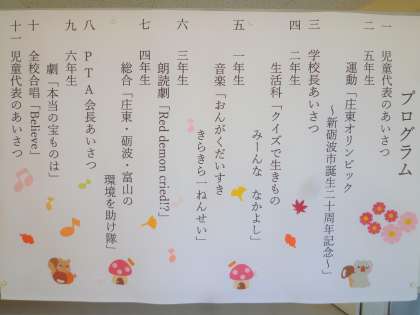 プログラム
一 児童代表のあいさつ
二 五年生
運動「庄東オリンピック
～新砺波市誕生二十周年記念～」
三 学校長あいさつ
四 二年生
生活科「クイズで生きもの
みーんな なかよし」
五 一年生
音楽「おんがくだいすき
きらきら一ねんせい」
六 三年生
朗読劇「Red demon cried!?」
七 四年生
総合「庄東・砺波・富山の
環境を助け隊」
八 PTA会長あいさつ
九 六年生
劇「本当の宝ものは」
十 全校合唱「Believe」
十一 児童代表のあいさつ